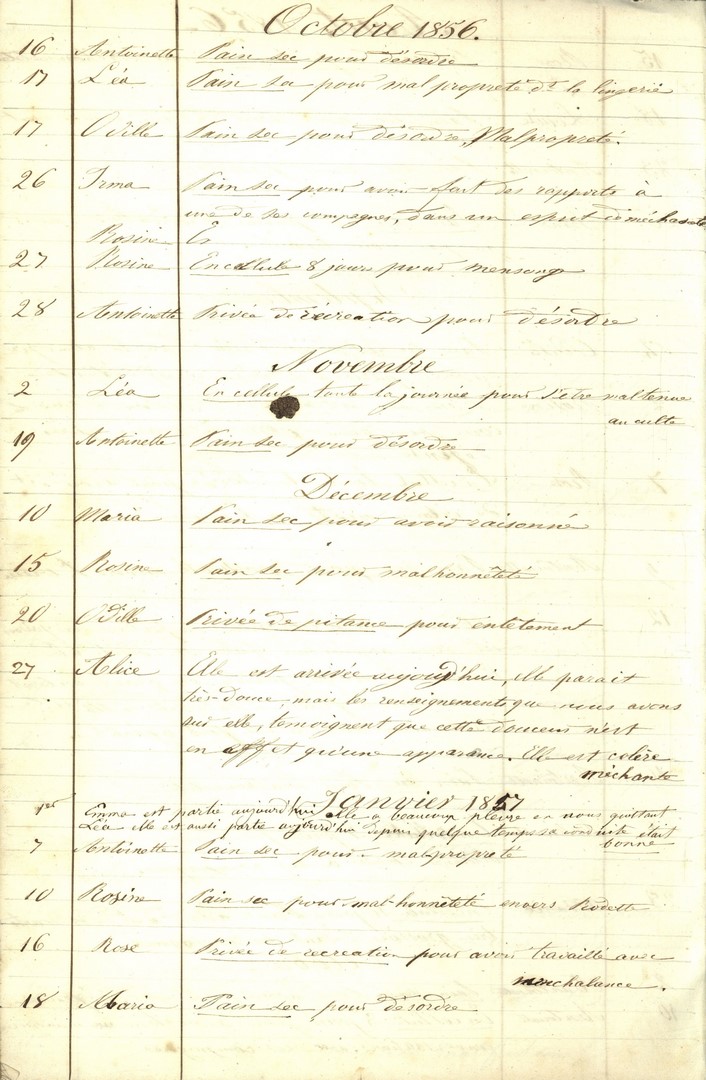 Octobre 1856.
16 Antoinette Pain sec pour désordre
17 Léa Pain sec pour malpropreté dt la lingerie
17 Odille Pain sec pour désordre, Malpropreté.
26 Irma Pain sec pour avoir fait des rapports à
une de ses compagnes, dans un esprit de méchanceté
Rosine En
27 Rosine En cellule 8 jours pour mensonge
28 Antoinette Privée de récréation pour désordre
Novembre
2 Léa En cellule toute la journée pour s'être mal tenue
au culte
19 Antoinette Pain sec pour désordre
Décembre
10 Maria Pain sec pour avoir raisonné
15 Rosine Pain sec pour malhonnêteté
20 Odille Privée de pitance pour entêtement
27 Alice Elle est arrivée aujourd'hui, elle parait
très-douce, mais les renseignements que nous avons
sur elle, temoignent que cette douceur n'est
en effet qu'une apparence. Elle est colère
méchante
Janvier 1857
1er Emma est partie aujourd'hui elle a beaucoup pleuré en nous quittant
Léa elle est aussi partie aujourd'hui depuis quelque temps sa conduite était
bonne
7 Antoinette Pain sec pour malpropreté
10 Rosine Pain sec pour mal-honnêteté envers
16 Rose Privée de recreation pour avoir travaillé avec
nonchalance.
18 Maria Pain sec pour désordre